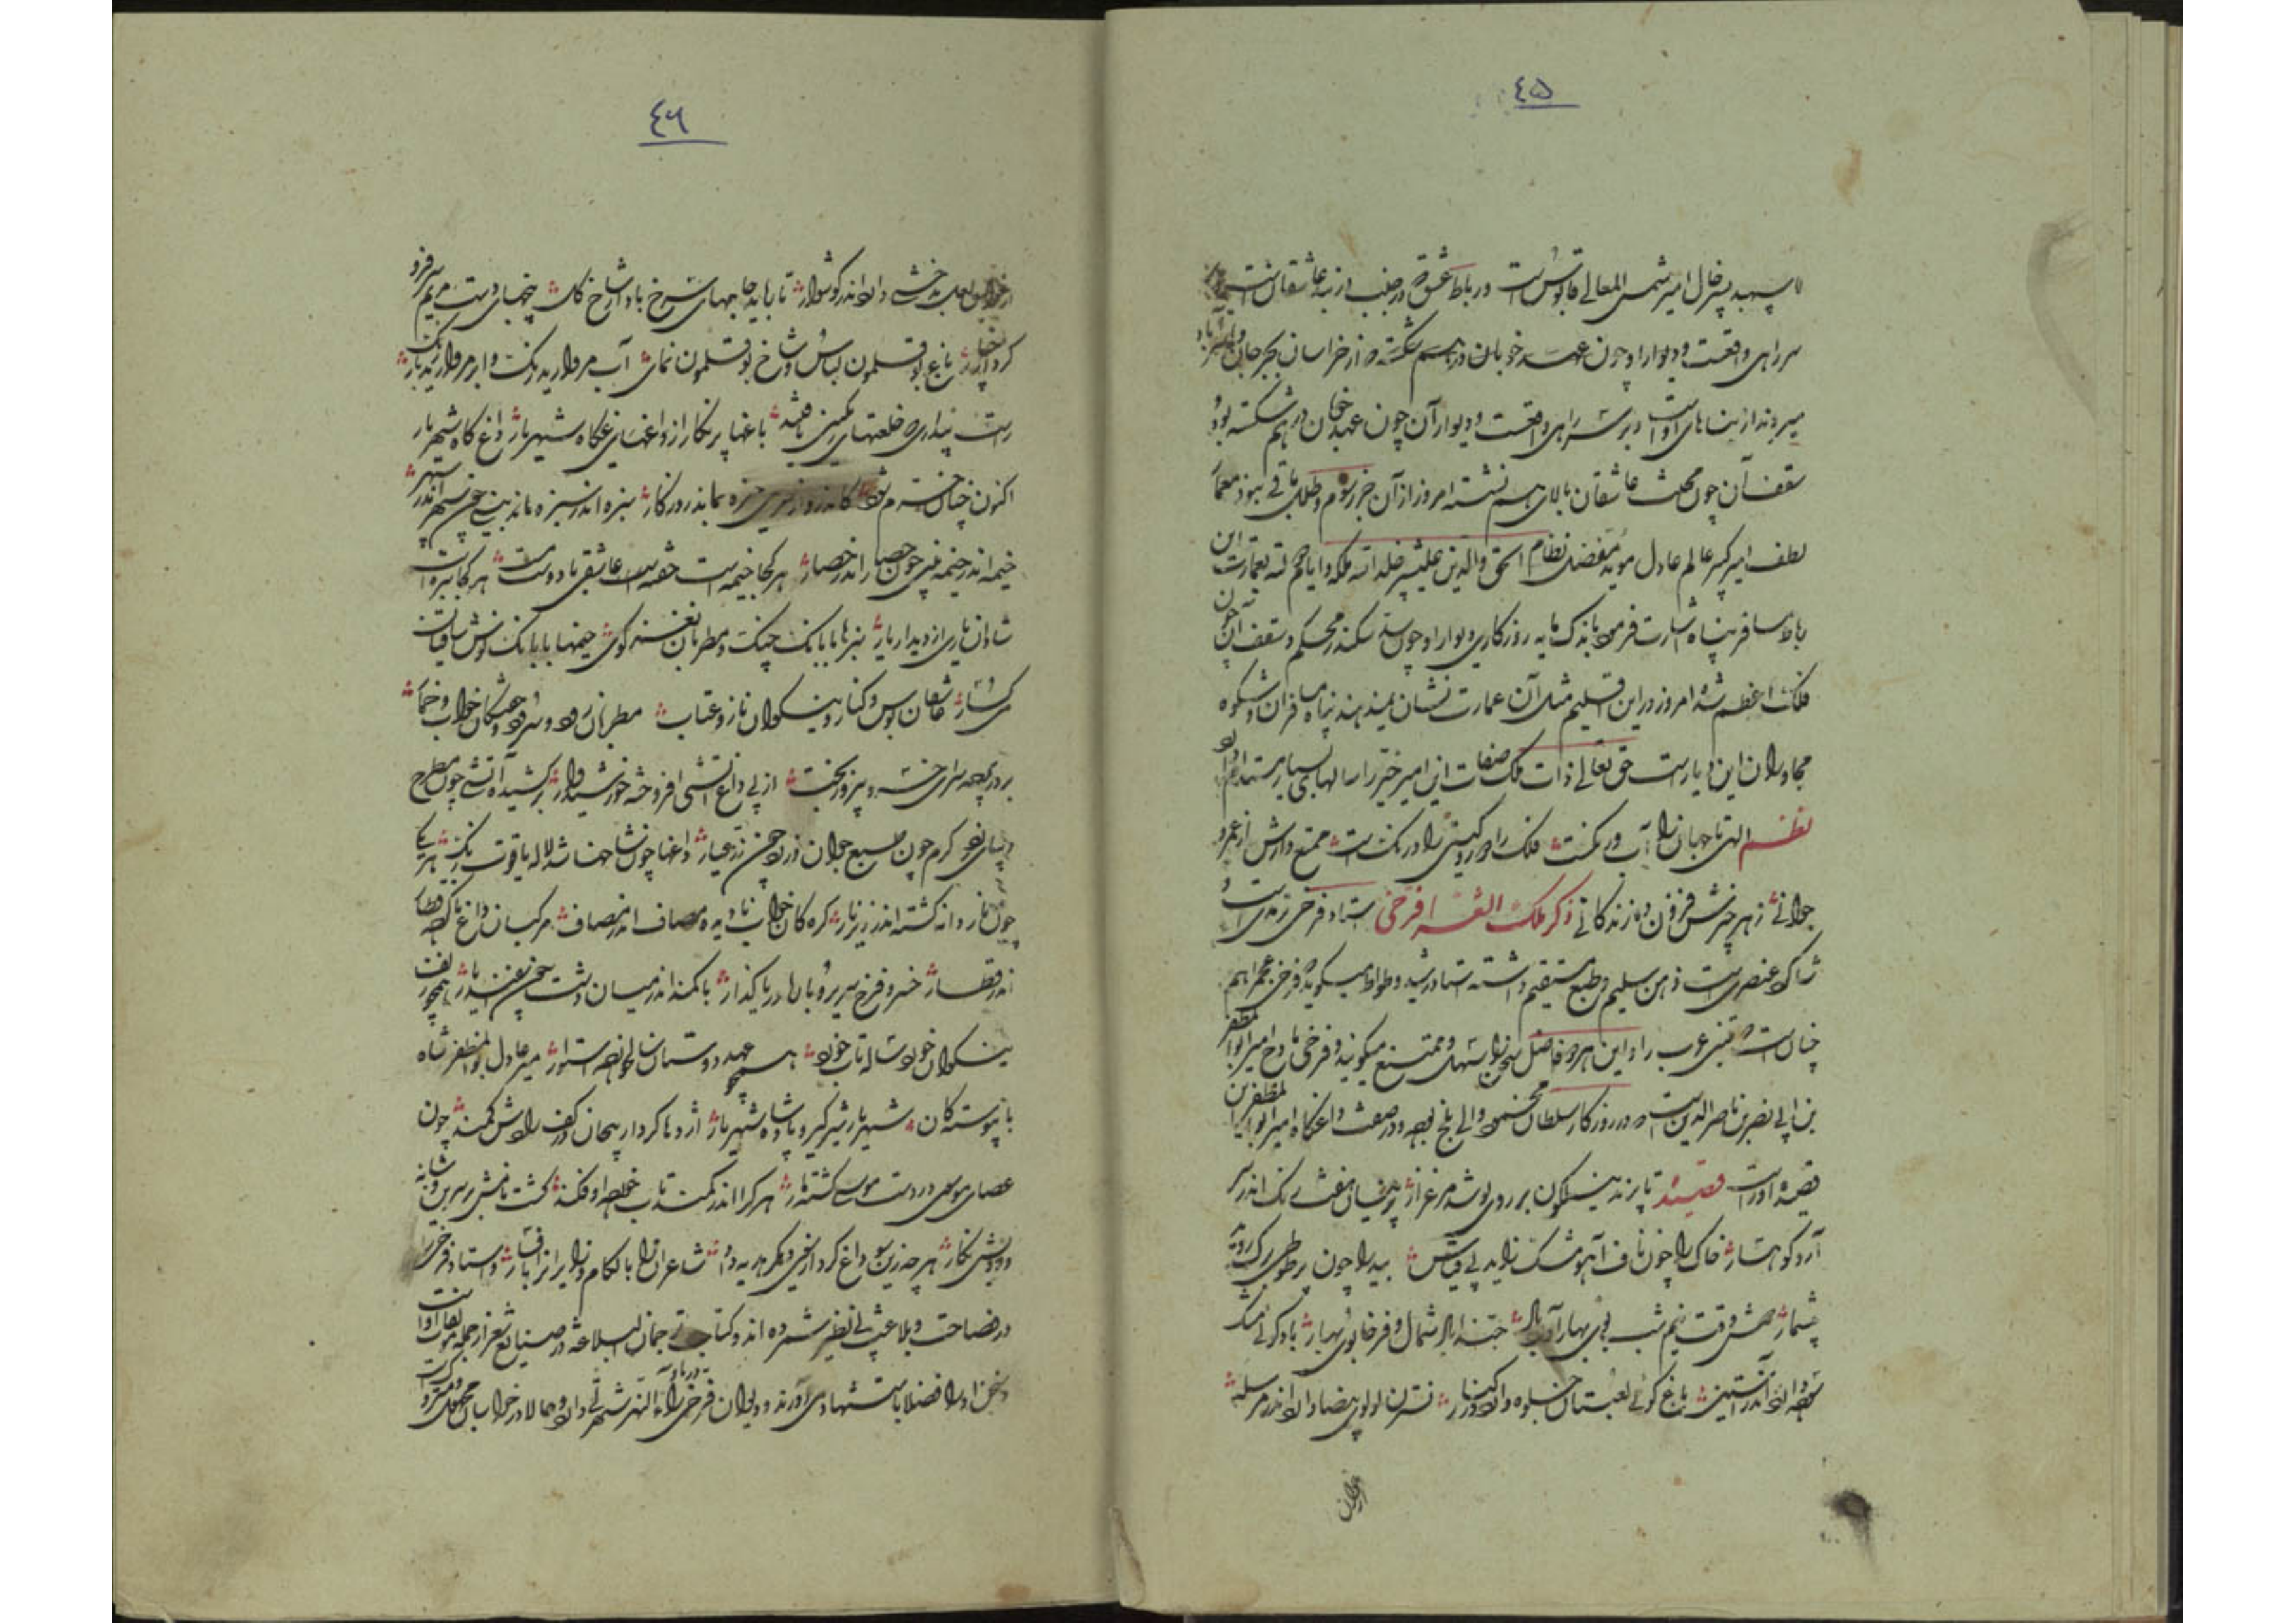 ٤٥
سپهبد پسر خال امیر شمس المعالی قابوس است و رباط عشق در جنب دربند شقان است
سر راهی واقعست و دیوار او چون عهد خوبان درهم شکسته از خراسان بجرجان و استرآباد
میروند از بناهای اوست و بر سر راهی واقعست و دیوار آن چون عهد خوبان درهم شکسته بود
سقف آن چون محنت عاشقان بالای هم نشسته امروز از آن جز رسوم و طلل باقی نبود معمار
لطف امیر کبیر عالم عادل موید مفضل نظام الحق والدین علیشیر خلد الله ملکه و ایام دولته بعمارت این
رباط مسافر پناه اشارت فرمود باندک مایه روزگاری دیوار او چون سد سکندر محکم و سقف آن چون
فلک اعظم شد امروز در این اقلیم مثل آن عمارت نشان نمیدهند پناه مسافران و شکوه
مجاوران این دیارست حق تعالی ذات ملک صفات این امیر خیر را سالهای بسیار مستدام دارد
نظم الهی تا جهان را آب و رنگست فلک را دور و گیتی را درنگ است ممتع دارش از عمر و
جوانی ز هر چیزش فزون ده زندگانی ذکر ملک الشعرا فرخی استاد فرخی ترمدی است و
شاگرد عنصری است ذهن سلیم و طبع مستقیم داشته استاد رشید وطواط میگوید فرخی عجم را هم
چنان است که متنبی عرب را و این هر دو فاضل سخن را سهل و ممتنع میگویند و فرخی مادح امیر ابو المظفر
بن ابی نصر بن ناصر الدین است در روزگار سلطان محمود والی بلخ بوده و در صفت داغگاه امیر ابو المظفر این
قصیده او راست قصیده تا پرند نیلگون بر روی پوشد مرغزار پرنیان هفت رنگ اندر سر
آرد کوهسار خاک را چون ناف آهو مشک زاید بی قیاس بید را چون پر طوطی برگ روید
بیشمار دوش وقت نیم شب بوی بهار آورد باد حبذا باد شمال و فرخا بوی بهار باد گوئی مشک
سوده دارد اندر آستین باغ گوئی لعبتان جلوه دارد در کنار نسترن لولوی بیضا دارد اندر مرسله
ارغوان
٤٦
ارغوان لعل بدخشی دارد اندر گوشوار تا بر آید جامهای سرخ باده از شاخ گل پنجهای دست مردم سر فرو
کرد از چنار باغ بوقلمون لباس و شاخ بوقلمون نمای آب مروارید رنگ و ابر مروارید بار
راست پنداری که خلعتهای رنگین یافتند باغها پر نگار از داغگاه شهریار داغگاه شهریار
اکنون چنان خرم بود کاندرو از خرمی خیره بماند روزگار سبزه اندر سبزه بینی چون سپهر اندر سپهر
خیمه اندر خیمه بینی چون حصار اندر حصار هر کجا خیمه است خفته است عاشقی با دوست مست هر کجا سبزه است
شادان یاری از دیدار یار سبزها با بانگ چنگ و مطربان نغمه گوی خیمها با بانگ نوش ساقیان
می گسار عاشقان بوس و کنار و نیکوان ناز و عتاب مطربان رود و سرود و خفتگان خواب و خمار
بر در پرده سرای خسرو پیروز بخت از پی داغ آتشی افروخته خورشید وار برکشیده آتشی چون مطرح
دیبای زرد گرم چون طبع جوان و زرد چون زر عیار داغها چون شاخهای لاله یاقوت رنگ هر یکی
چون نار دانه گشته اندر زیر نار کره گان خواب نادیده مصاف اندر مصاف مرکبان داغ ناکرده قطار
اندر قطار خسرو فرخ سیر بر باره دریا گذار با کمند اندر میان دشت چون اسفندیار همچو زلف
نیکوان خورد ساله تاب خورده همچو عهد دوستان سالخورده استوار میر عادل بو المظفر شاه
با پیوستگان شهریار شیرگیر و پادشاه شهریار اژدها کردار پیچان در کف رادش کمند چون
عصای موسی در دست موسی گشته مار هر کرا اندر کمند تاب خورده افکند گشت نامش بر سرین و شانه
و رویش نگار هر چه زین سو داغ کرد از سوی دیگر هدیه داد شاعران را با لگام و زایران را با فسار و استاد فرخی را
در فصاحت و بلاغت بی نظیر شمرده اند و کتاب ترجمان البلاغه در صنایع شعر از جمله مؤلفات اوست
و سخن او را فضلا باستشهاد می آورند و دیوان فرخی در ماوراء النهر شهرتی دارد و حالا در خراسان مجهول و متروک است